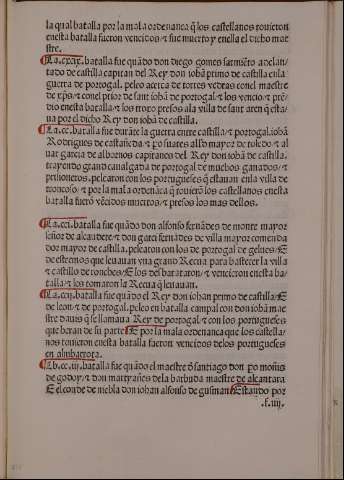 la qual batalla por la mala ordenança q̃ los castellanos touieron
enesta batalla fueron vencidos ⁊ fue muerto y enella el dicho mae
stre.
La.cxcix. batalla fue quãdo don diego gomes sarmiẽto adelan⸗
tado de castilla capitan del Rey don iohã primo de castilla enla
guerra de portogal. peleo acerca de torres vedras conel maestre
de xp̃s ⁊ conel prior de sant iohã de portogal ⁊ los vencio ⁊ prẽ⸗
dio enesta batalla ⁊ los troxo presos ala villa de sant arẽ q̃ esta⸗
ua por el dicho Rey don iohã de castilla.
La.cc. batalla fue durãte la guerra entre castilla ⁊ portogal. iohã
Rodrigues de castañeda ⁊ po suares alfs̃ mayor de toledo ⁊ al
uar garcia de albornos capitanos del Rey don iohã de castilla.
trayendo grand caualgada de portogal de muchos ganados ⁊
prisioneros. pelearon con los portogueses q̃ estauan enla villa de
troncoso ⁊ por la mala ordenãça q̃ touierõ los castellanos enesta
batalla fuerõ vẽcidos muertos ⁊ presos los mas dellos.
La.cci. batalla fue quãdo don alfonso fernãdes de monte mayor
señor de alcaudete ⁊ don garci fernãdes de villa mayor comenda
dor mayor de castilla. pelearon con los de portogal de gelues ⁊ E
de estremos que leuauan vna grand Recua para bastecer la villa
⁊ castillo de ronches ⁊ E los desbarataron ⁊ vencieron enesta ba⸗
talla ⁊ les tomaron la Recua q̃ leuauan.
La.ccij. batalla fue quãdo el Rey don iohan primo de castilla ⁊ E
de leon ⁊ de portogal. peleo en batalla campal con don iohã mae
stre dauis q̃ se llamaua Rey de portogal ⁊ con los portogueses
que heran de su parte E por la mala ordenança que los castella⸗
nos touieron enesta batalla fueron vencidos delos portogueses
en aljubarrota.
Lb.cc.iij. batalla fue quãdo el maestre đ santiago don po moñis
de godoy ⁊ don martyañes dela barbuda maestre de alcantara
E el conde de niebla don iohan alfonso de gusman Estando por
.f.iiij.